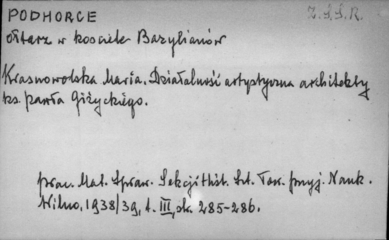 PODHORCE
Z.S.S.R.
ołtarz w kościele Bazylianów
Krasnowolska Maria. Działalność artystyczna architekty
ks. Pawła Giżyckiego.
prac. Mat. Spraw. Sekcji Hist. Szt. Tow. Przyj. Nauk.
Wilno, 1938/39, t. III, str. 285-286.